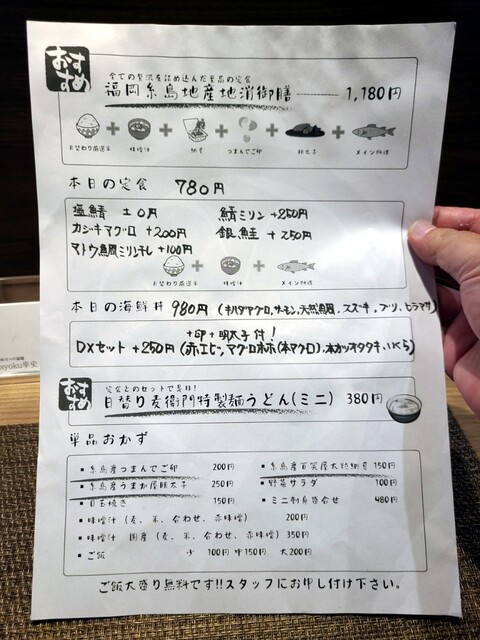 おすすめ
全ての贅沢を詰め込んだ至高の定食
福岡糸島地産地消御膳 1,180円
お替わり厳選米 + 味噌汁 + 納豆 + つまんでご卵 + 明太子 + メイン料理
本日の定食 780円
塩鯖 ±0円 鯖ミリン +250円
カジキマグロ +200円 銀鮭 + 250円
マトウ鯛ミリン干し +100円
お替わり厳選米 + 味噌汁 + メイン料理
本日の海鮮丼 980円 (キハダマグロ,サーモン,天然鯛,スズキ,ブリ,ヒラマサ)
+卵+明太子付!
DXセット +250円 (赤エビ,マグロホホ(本マグロ),本カツオタタキ,いくら)
おすすめ
定食とのセットで是非!
日替り麦衛門特製麺うどん(ミニ) 380円
単品おかず
・糸島産つまんでご卵 200円 ・糸島産百笑屋大粒納豆 150円
・糸島産うまか屋明太子 250円 ・野菜サラダ 100円
・目玉焼き 150円 ・ミニ刺身盛合せ 480円
・味噌汁 (麦、米、合わせ、赤味噌) 200円
・味噌汁 国産 (麦、米、合わせ、赤味噌) 350円
・ご飯 小 100円 中150円 大200円
ご飯大盛り無料です!!スタッフにお申し付け下さい。